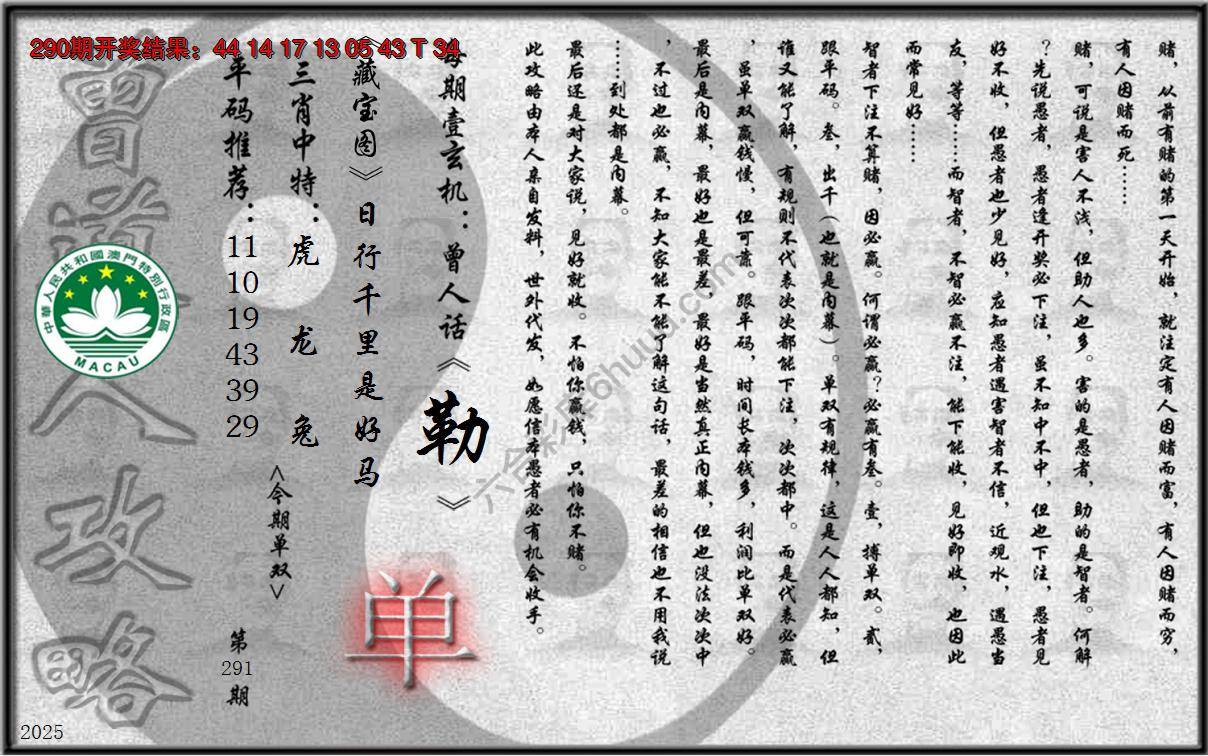 290期开奖结果：44 14 17 13 05 43 T 34
赌，从前有赌的第一天开始，就注定有人因赌而富，有人因赌而穷，
有人因赌而死……
赌，可说是害人不浅，但助人也多。害的是愚者，助的是智者。何解
？先说愚者，愚者逢开奖必下注，虽不知中不中，但也下注，愚者见
好不收，但愚者也少见好，应知愚者遇害智者不信，近观水，遇愚当
友，等等……而智者，不智必赢不注，能下能收，见好即收，也因此
而常见好……
智者下注不算赌，因必赢。何谓必赢？必赢有叁。壹，搏单双。贰，
跟平码。叁，出千（也就是内幕）。单双有规律，这是人人都知，但
谁又能了解，有规则不代表次次都能下注，次次都中。而是代表必赢
，虽单双赢钱慢，但可靠。跟平码，时间长本钱多，利润比单双好。
最后是内幕，最好也是最差，最好是当然真正内幕，但也没法次次中
，不过也必赢，不知大家能不能了解这句话，最差的相信也不用我说
……到处都是内幕。
最后还是对大家说，见好就收。不怕你赢钱，只怕你不赌。
此攻略由本人亲自发料，世外代发，如愿信本愚者必有机会收手。
每期壹玄机：曾人话《勒》
《藏宝图》日行千里是好马
三肖中特：虎 龙 兔
平码推荐：11 10 19 43 39 29
<今期单双>
单
第291期
曾道人攻略
中華人民共和國澳門特別行政區
MACAU
2025